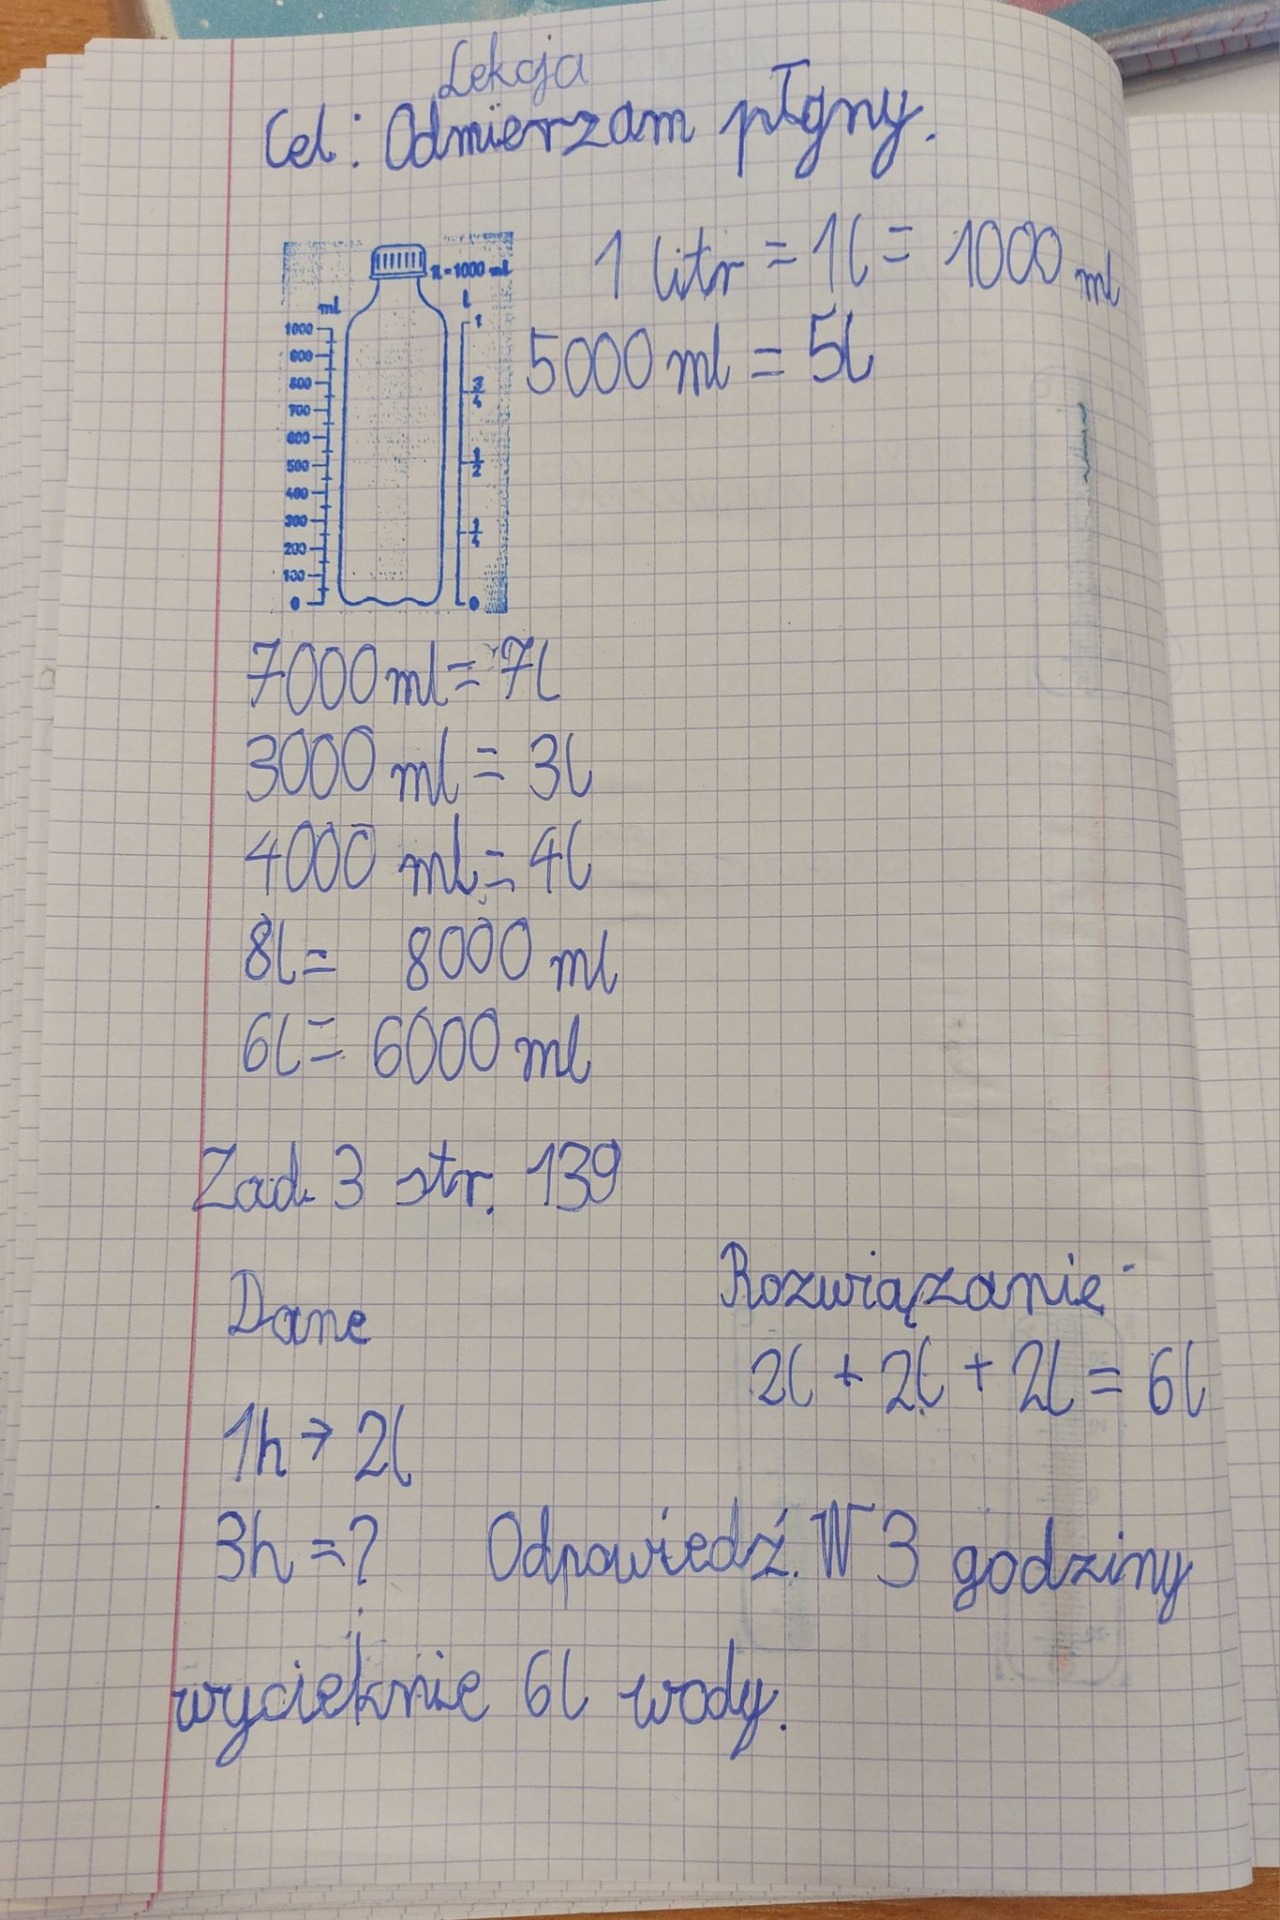 Lekcja
Cel: Odmierzam płyny.
1 litr = 1l = 1000 ml
1l = 1000 ml
ml
l
1000
900
800
700
600
500
400
300
200
100
0
1
3/4
1/2
1/4
0
5000 ml = 5l
7000 ml = 7l
3000 ml = 3l
4000 ml = 4l
8l = 8000 ml
6l = 6000 ml
Zad. 3 str. 139
Dane
Rozwiązanie
2l + 2l + 2l = 6l
1h → 2l
3h = ? Odpowiedź. W 3 godziny
wycieknie 6l wody.